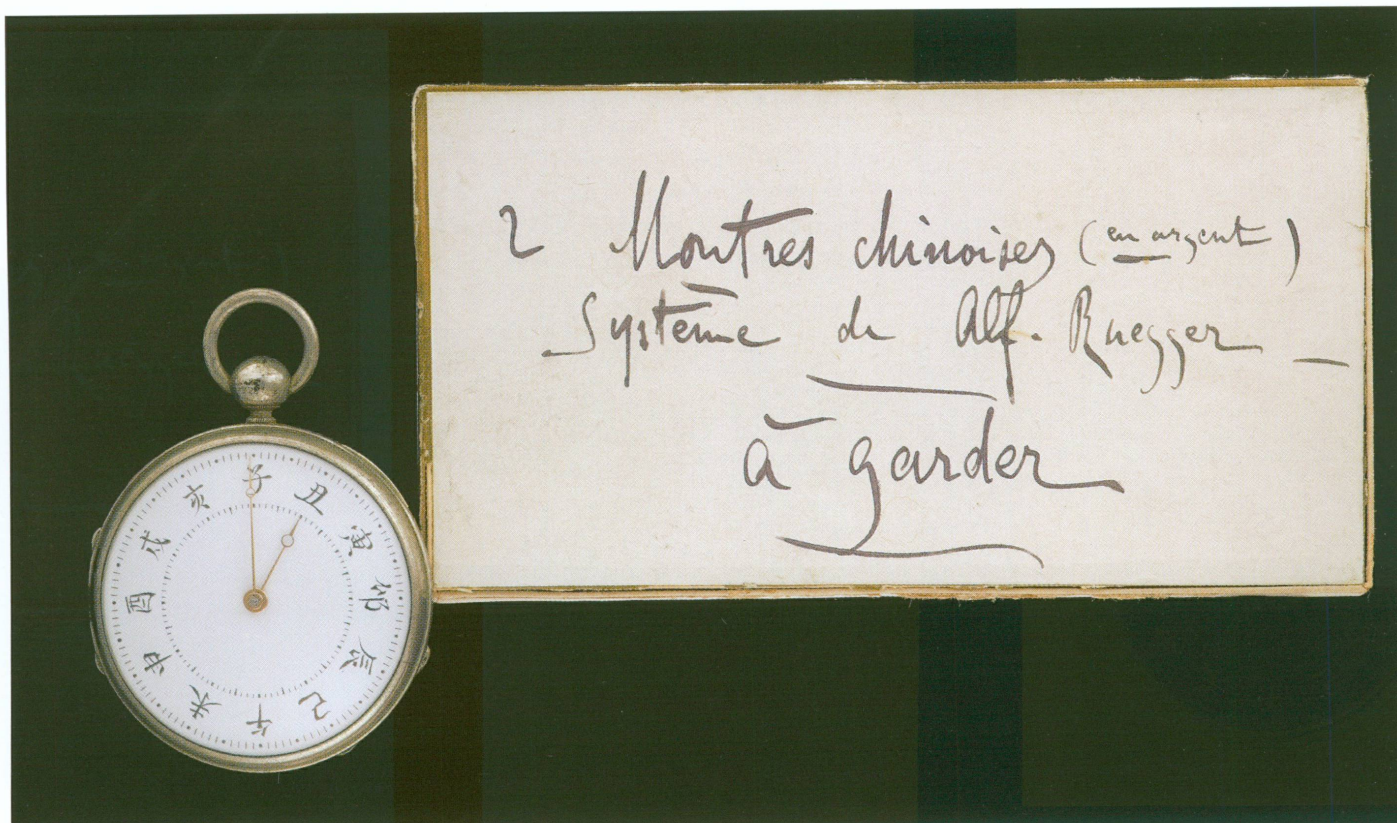 2 Montres chinoises (en argent)
Système de Alf. Ruegger _
à garder
子
丑
寅
卯
辰
巳
午
未
申
酉
戌
亥